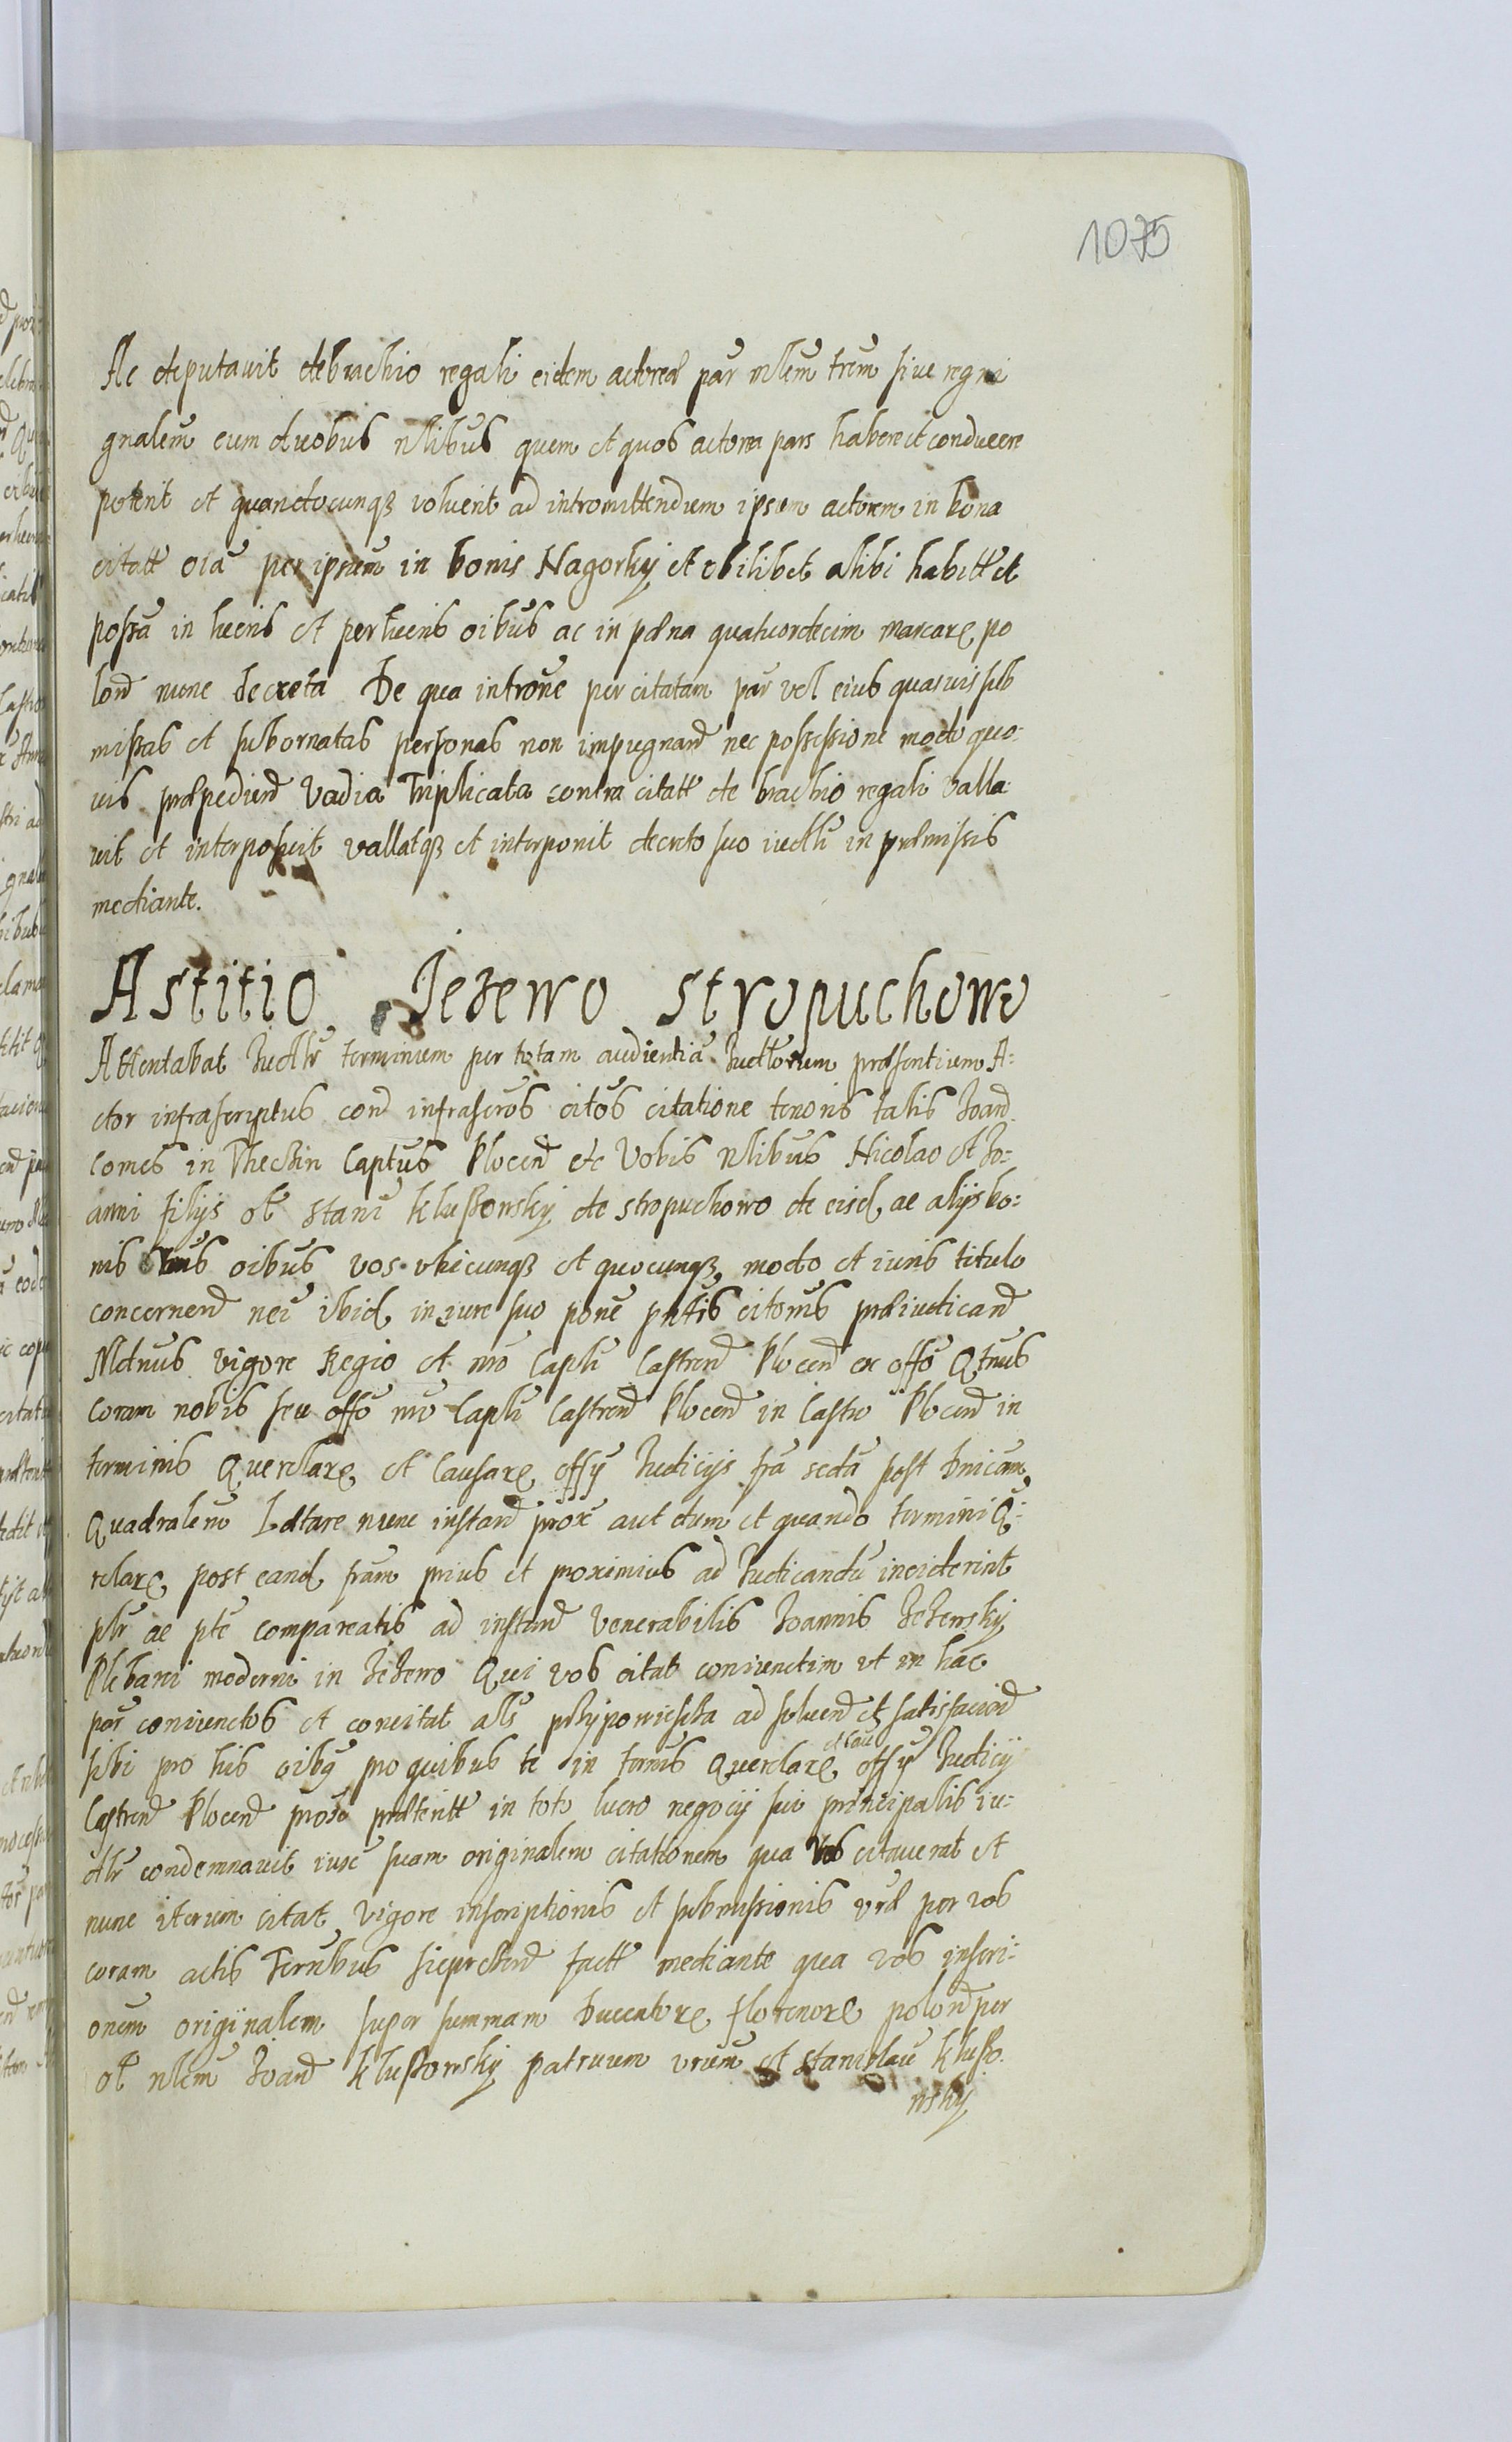 1075
Ac deputauit de brachio regali eidem actoreæ par nlem trem siue regni
gnalem cum duobus nlibus quem et quos actorea pars habere et conducere
poterit et quandocunqz voluerit ad intromittendum ipsum actorem in bona
citatt oia per ipsum in bonis Nagorky et vbilibet alibi habitt et
possa in heris et per heris oibus ac in pæna quatuordecim marcarx po
lond nunc decreta De qua introne per citatam par vel eius quasuis sub
missas et subornatas personas non impugnand nec possessione modo quo:
uis præpediend Vadia Triplicata contra citatt de brachio regali valla
uit et interposuit vallatqz et interponit decreto suo iudli in præmissis
mediante.
Astitio Jezewo Stropuchowo
Attentabat Iudllr terminum per totam audientia Iudliorum præsentium A:
ctor infrascriptus cond infrascros citos citatione tenoris talis Joand
Comes in Thectin Captus Plocend etc Vobis nlibus Nicolao et Jo:
anni filys ol Stani Klussowsky de Stropuchowo de eisd ac alys bo:
nis oibus vos vbicunqz et quocunqz modo et iuris titulo
concernend nei ibid in iure suo pone pntis citonis præiudicand
Mdnus vigore Regio et nro Capli Castrend Plocend ex offo Qtnus
Coram nobis seu offo nro Capli Castrend Plocend in Castro Plocend in
terminis Querelarx et Causarx offy Iudicys fra secda post Dnicam
Quadralem Lætare nunc instand prox aut dum et quando termini Q:
relarx post eand fram prius et proximius ad Iudicandu inciderint
plr ac pte compareatis ad instand Venerabilis Joannis Jezewsky
Plebani moderni in Jezewo Qui vos citat coniunctim ut in hac
par coniunctos et concitat als przypowiesta ad soluend et satisfaciend
sibi pro his oibq pro quibus te in termis Querelarx et cau offy Iudicy
Castrend Plocend prox præteritt in toto lucro negocy sui principalis iu:
dlr condemnauit iuxe suam originalem citationem qua vos citauerat et
nunc iterum citat vigore inscriptionis et submissionis vræ per vos
coram actis Ternbus Sieprctend factt mediante qua vos inscri:
onem originalem super summam Ducentorx florenorx polond per
ol nlem Joand Klussowsky patruum vrum et Stanislau Klusso
wsky